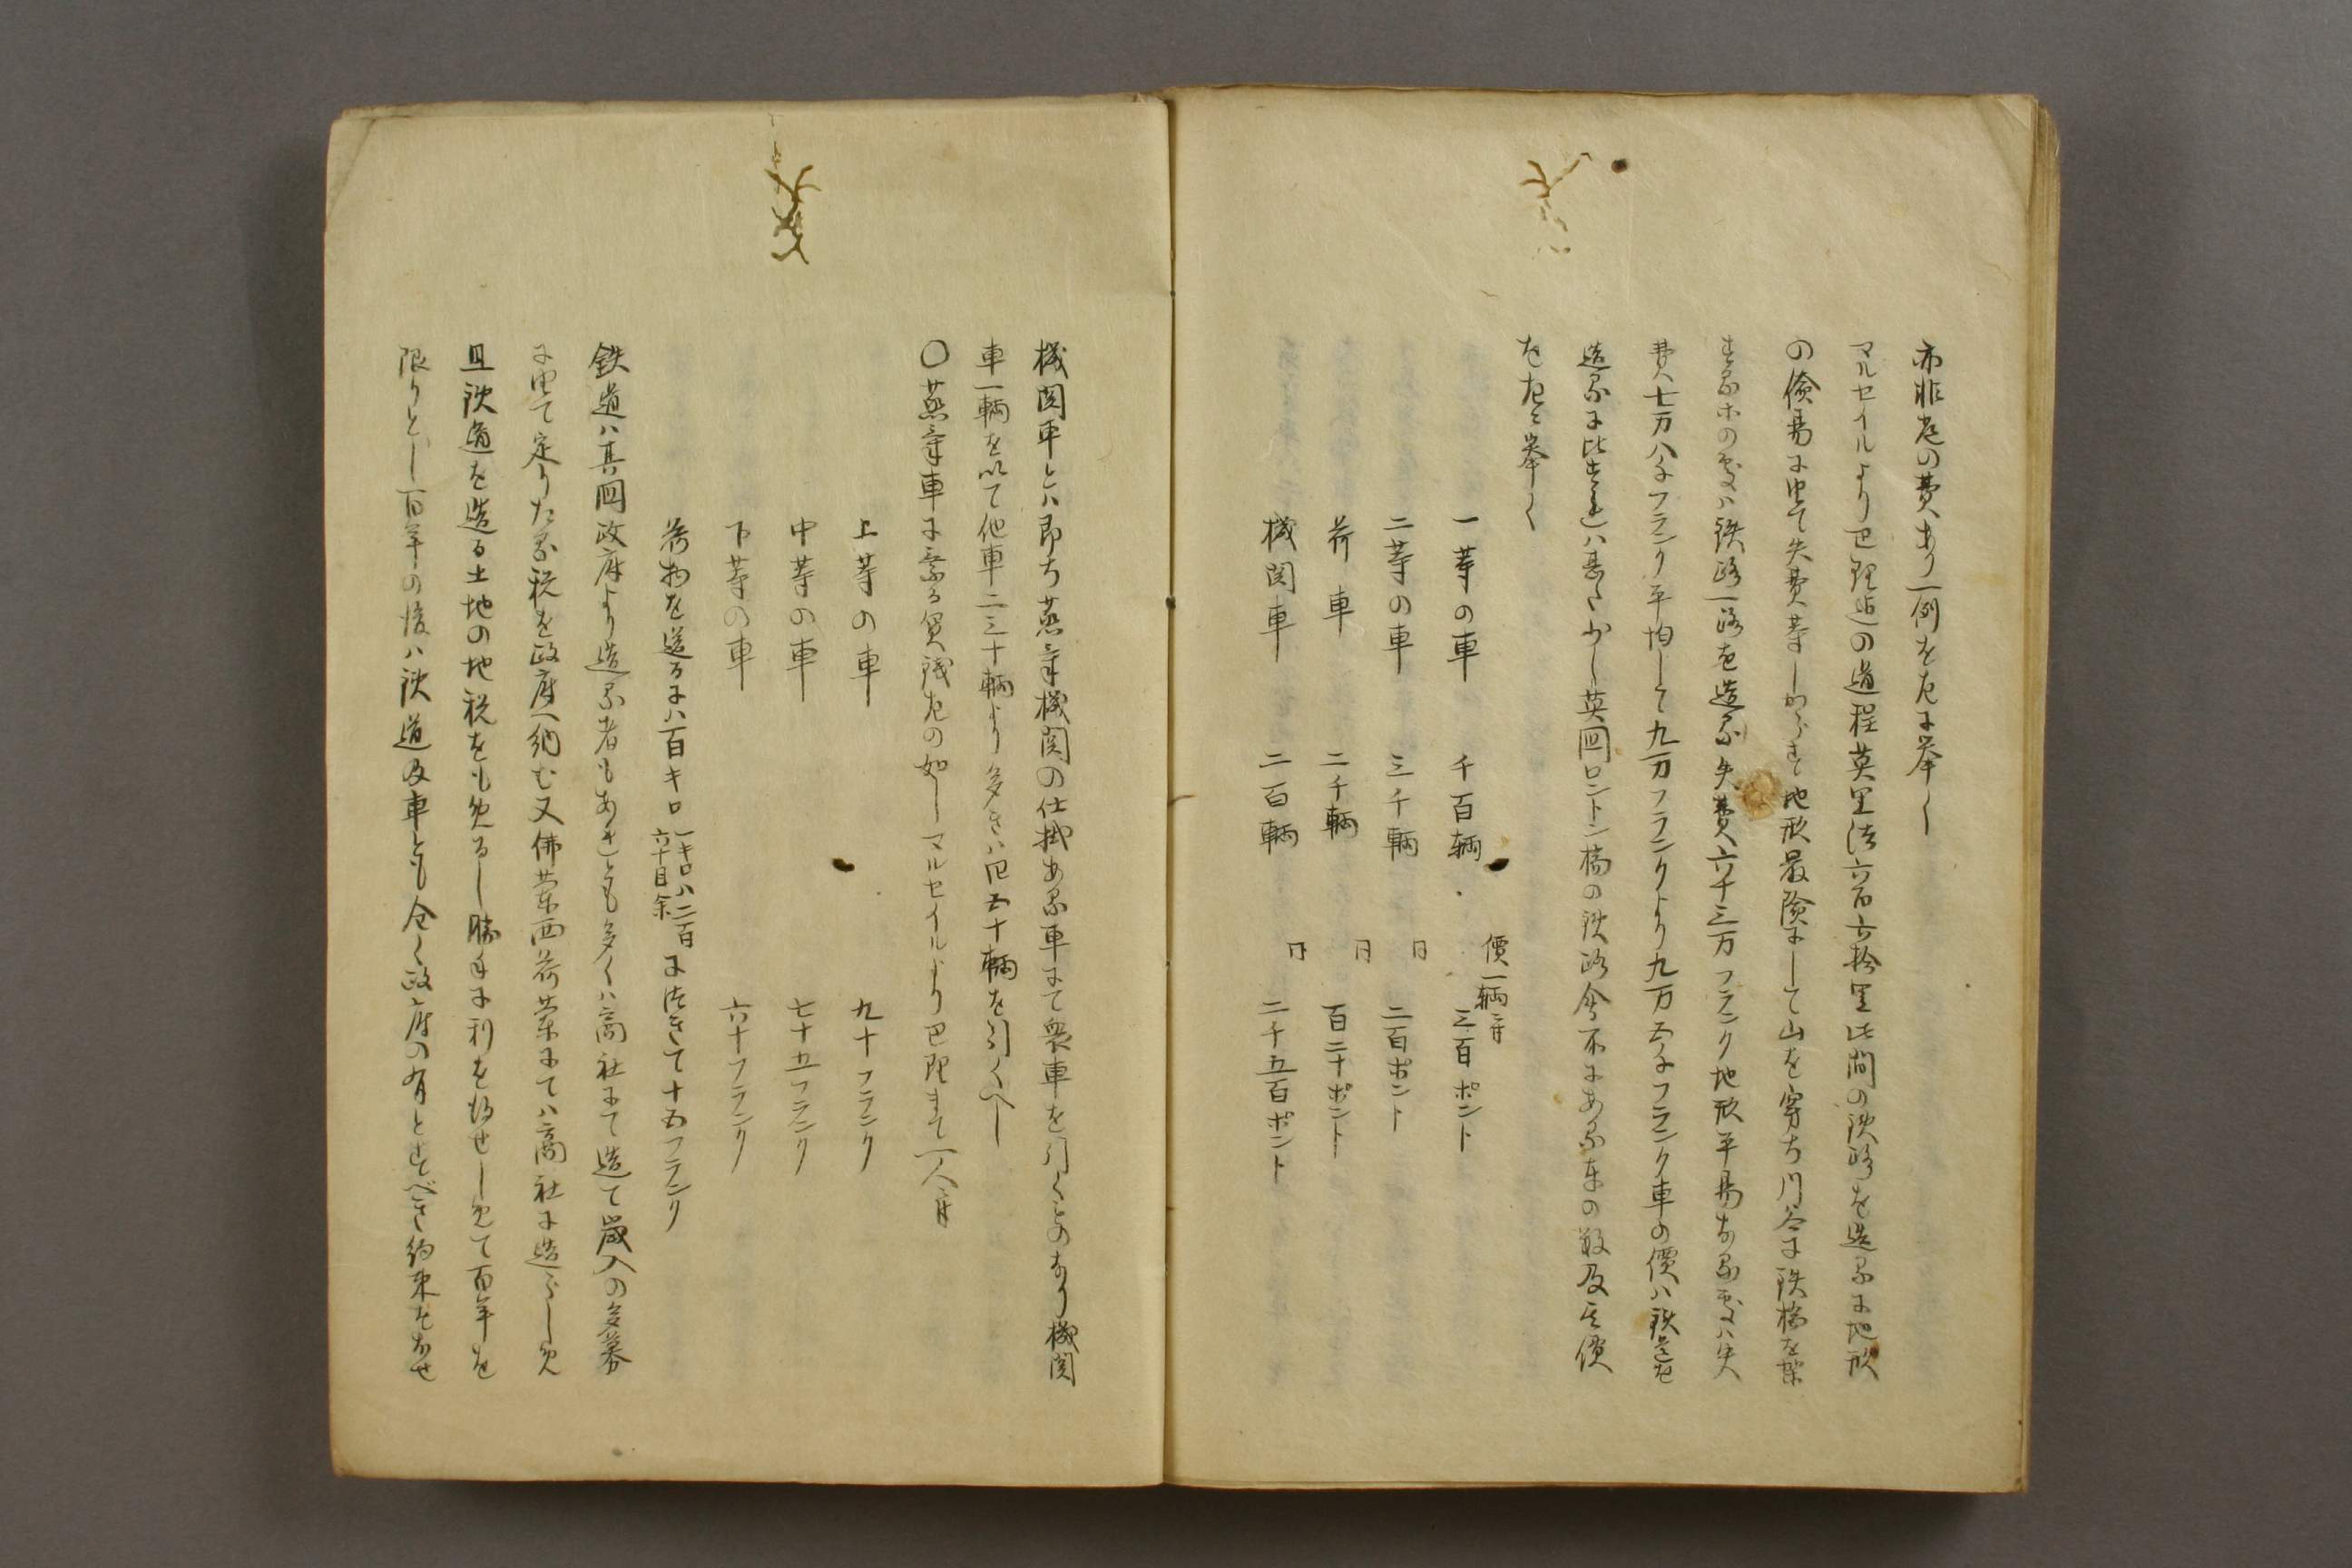 亦非常の費あり一例を左に挙く
マルセイルより巴理迄の道程英里法六百五拾里此間の鉄路を造るに地形
の倹易に由て失費等しからす地形最険にして山を穿ち川谷に鉄橋を架
する等の処ハ鉄路一路を造る失費六千三万フランク地形平易なる処ハ失
費七万八千フランク平均して九万フランクより九万五千フランク車の價ハ鉄道を
造るに比すれハ甚た少し英国ロントン橋の鉄路会所にある車の数及其價
を左に挙く
一等の車 千百輌 價一輌ニ付三百ポント
二等の車 三千輌 同 二百ポント
荷車 二千輌 同 百二十ポント
機関車 二百輌 同 二千五百ポント
機関車とハ即ち蒸気機関の仕掛ある車にて衆車を引くものなり機関
車一輌を以て他車二三十輌より多きハ四五十輌を引くへし
〇蒸気車に乗る賃銭左の如しマルセイルより巴理まて一人ニ付
上等の車 九十フランク
中等の車 七十五フランク
下等の車 六十フランク
荷物を送るにハ百キロ一キロハ二百六十目余に付きて十五フランク
鉄道ハ其国政府より造る者もあれとも多くハ商社にて造て歳入の多寡
に由て定りたる税を政府へ納む又佛蘭西荷蘭にてハ商社に造らしめ
且鉄道を造る土地の地税をも免るし勝手に利を得せしめて百年を
限りとし百年の後ハ鉄道及車とも全く政府の有とすべき約束をなせ